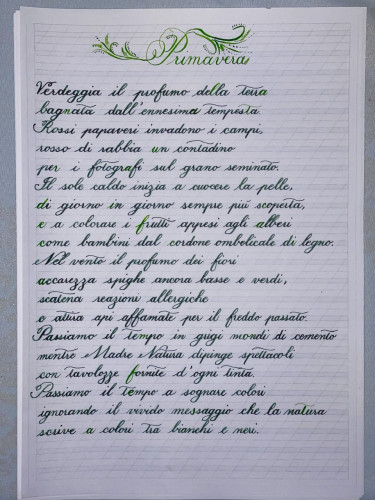 Primavera
Verdeggia il profumo della terra
bagnata dall'ennesima tempesta.
Rossi papaveri invadono i campi,
rosso di rabbia un contadino
per i fotografi sul grano seminato.
Il sole caldo inizia a cuocere la pelle,
di giorno in giorno sempre più scoperta,
e a colorare i frutti appesi agli alberi
come bambini dal cordone ombelicale di legno.
Nel vento il profumo dei fiori
accarezza spighe ancora basse e verdi,
scatena reazioni allergiche
e attira api affamate per il freddo passato.
Passiamo il tempo in grigi mondi di cemento
mentre Madre Natura dipinge spettacoli
con tavolozze fornite d'ogni tinta.
Passiamo il tempo a sognare colori
ignorando il vivido messaggio che la natura
scrive a colori tra bianchi e neri.